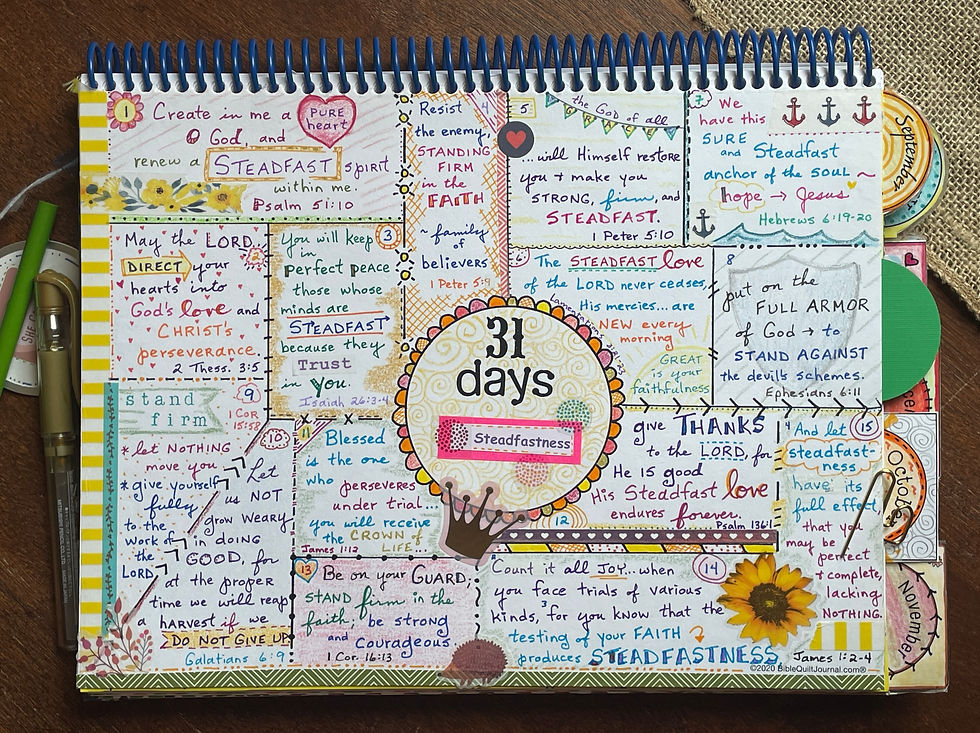 1
Create in me a
PURE
heart
O God, and
renew a STEADFAST spirit
within me.
Psalm 51:10
2
May the LORD
DIRECT your
hearts into
God's love and
CHRIST's
perseverance.
2 Thess. 3:5
3
You will keep
in
perfect peace
those whose
minds are
STEADFAST
because they
Trust
in You.
Isaiah 26:3-4
4
Resist
the enemy,
STANDING
FIRM
in the
FAITH
~ family
of
believers
1 Peter 5:9
5
the God of all
...will Himself restore
you + make you
STRONG, firm, and
STEADFAST.
1 Peter 5:10
6
The STEADFAST love
of the LORD never ceases,
His mercies... are
NEW every
morning
GREAT
is your
faithfulness
7
We
have this
SURE
and Steadfast
anchor of the SOUL ~
hope → Jesus
Hebrews 6:19-20
8
put on the
FULL ARMOR
of God → to
STAND AGAINST
the devil's schemes.
Ephesians 6:11
31
days
Steadfastness
9
stand
firm
1 Cor
15:58
* let NOTHING
move you
* give yourself
fully
to the
work of
the
LORD
10
Let
us NOT
grow weary
in DOING
GOOD, for
at the proper
time we will reap
a harvest if we
DO NOT GIVE UP
Galatians 6:9
11
Blessed
is the one
who
perseveres
under trial...
you will receive
the CROWN of
LIFE...
James 1:12
12
give THANKS
to the LORD, for
He is good
His Steadfast love
endures forever.
Psalm 136:1
13
Be on your GUARD;
STAND firm in the
faith, be strong
and Courageous
1 Cor. 16:13
14
Count it all JOY... when
you face trials of various
kinds, 3 for you know that the
testing of your FAITH
produces STEADFASTNESS
15
4 And let
steadfast-
ness
have its
full effect,
that you
may be
perfect
+ complete,
lacking
NOTHING.
James 1:2-4
©2020 BibleQuiltJournal.com®
September
October
November